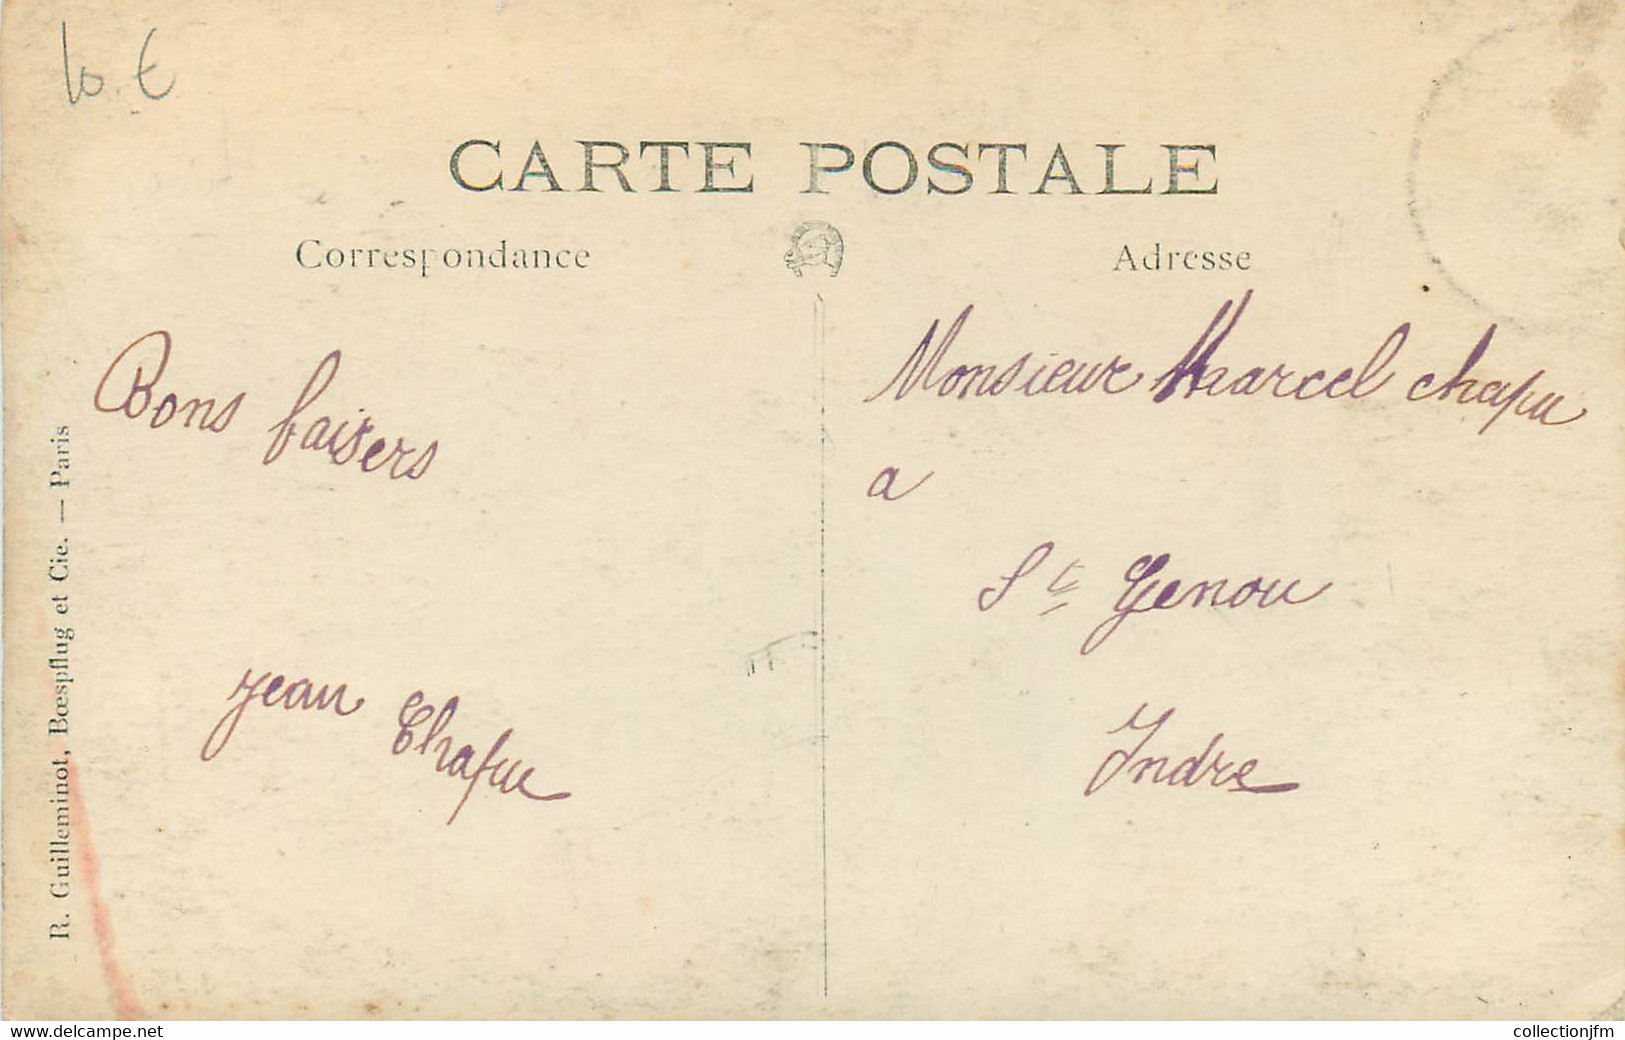 10 €
CARTE POSTALE
Correspondance
Adresse
Bons baisers
jean Chapu
Monsieur Marcel chapu
a
St Genou
Indre
R. Guilleminot, Bœspflug et Cie. — Paris
www.delcampe.net
collectionjfm